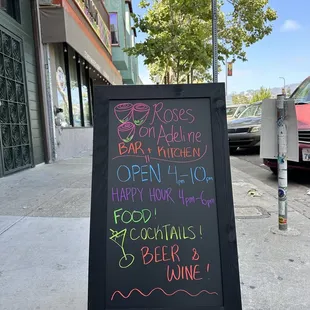 Roses
on Adeline
BAR + KITCHEN
OPEN 4-10pm
HAPPY HOUR 4pm-6pm
FOOD!
COCKTAILS!
BEER &
WINE!